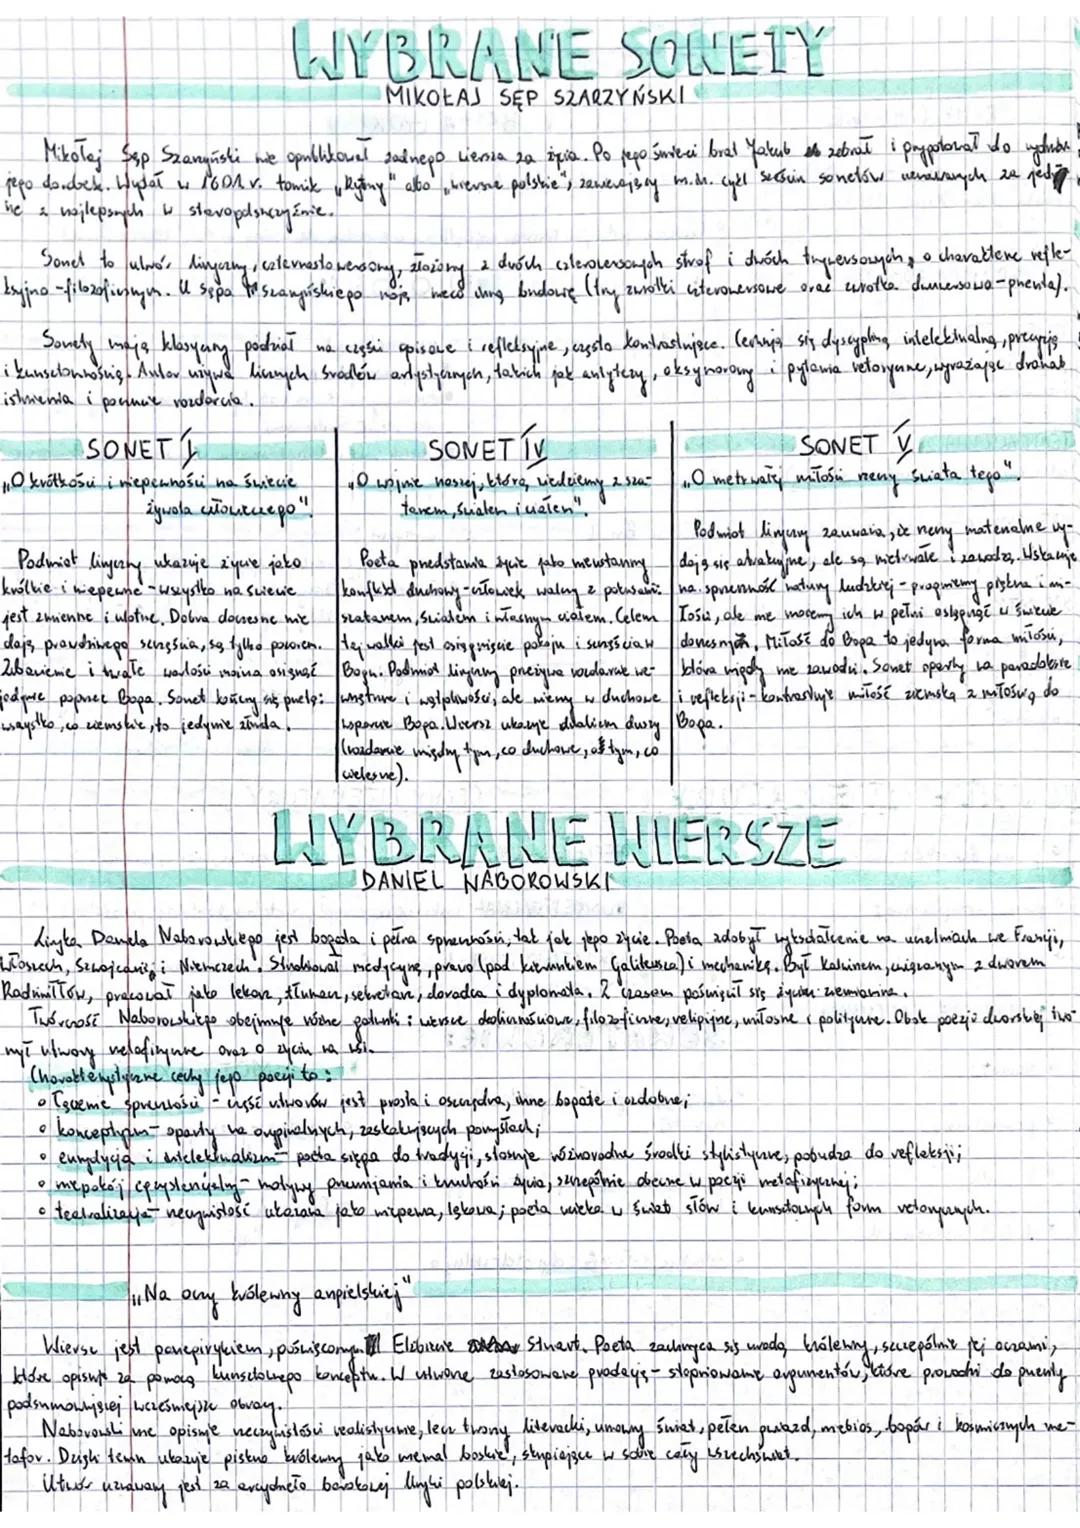 WYBRANE SONETY
MIKOŁAJ SĘP SZARZYŃSKI
Mikołaj Sęp Szarzyński nie opublikował żadnego wiersza za życia. Po jego śmierci brat Jakub zebrał i przygotował do wydania
jego dorobek. Wydał w 1601 r. tomik „Rytmy" albo „wiersze polskie", zawierający m.in. cykl sześciu sonetów uznawanych za jed
ne z najlepszych w staropolszczyźnie.
Sonet to utwór liryczny, czternastowersowy, złożony z dwóch czterowersowych strof i dwóch trzywersowych, o charakterze refle-
ksyjno-filozoficznym. U Sępa Szarzyńskiego mają nieco inną budowę (trzy zwrotki czterowersowe oraz zwrotka dwuwersowa-puenta).
Sonety mają klasyczny podział na części opisowe i refleksyjne, często kontrastujące. Cechują się dyscypliną intelektualną, precyzją
i kunsztownością. Autor używa licznych środków artystycznych, takich jak antytezy, oksymorony i pytania retoryczne, wyrażając dramat
istnienia i poczucie rozdarcia.
SONET I
„O krótkości i niepewności na świecie
żywota człowieczego".
Podmiot liryczny ukazuje życie jako
krótkie i niepewne - wszystko na świecie
jest zmienne i ulotne. Dobra doczesne nie
dają prawdziwego szczęścia, są tylko pozorem.
Zbawienie i trwałe wartości można osiągnąć
jedynie poprzez Boga. Sonet kończy się puentą:
wszystko, co ziemskie, to jedynie złuda.
SONET IV
„O wojnie naszej, którą wiedziemy z sza-
tanem, światem i ciałem".
Poeta przedstawia życie jako nieustanny
konflikt duchowy - człowiek walczy z pokusami:
szatanem, światem i własnym ciałem. Celem
tej walki jest osiągnięcie pokoju i szczęścia w
Bogu. Podmiot liryczny przeżywa rozdarcie we-
wnętrzne i wątpliwości, ale wierzy w duchowe
wsparcie Boga. Wiersz ukazuje dualizm duszy
(rozdarcie między tym, co duchowe, a tym, co
cielesne).
SONET V
„O nietrwałej miłości rzeczy świata tego".
Podmiot liryczny zauważa, że rzeczy materialne wy-
dają się atrakcyjne, ale są nietrwałe i zawodzą. Wskazuje
na sprzeczność natury ludzkiej - pragniemy piękna i mi-
łości, ale nie możemy ich w pełni osiągnąć w świecie
doczesnym. Miłość do Boga to jedyna forma miłości,
która nigdy nie zawodzi. Sonet oparty na paradoksie
i refleksji - kontrastuje miłość ziemską z miłością do
Boga.
WYBRANE WIERSZE
DANIEL NABOROWSKI
Liryka Daniela Naborowskiego jest bogata i pełna sprzeczności, tak jak jego życie. Poeta zdobył wykształcenie na uczelniach we Francji,
Włoszech, Szwajcarii i Niemczech. Studiował medycynę, prawo (pod kierunkiem Galileusza) i mechanikę. Był kalwinem, związanym z dworem
Radziwiłłów, pracował jako lekarz, tłumacz, sekretarz, doradca i dyplomata. Z czasem poświęcił się życiu ziemianina.
Twórczość Naborowskiego obejmuje różne gatunki: wiersze okolicznościowe, filozoficzne, religijne, miłosne i polityczne. Obok poezji dworskiej two-
rzył utwory metafizyczne oraz o życiu na wsi.
Charakterystyczne cechy jego poezji to:
• łączenie sprzeczności - część utworów jest prosta i oszczędna, inne bogate i ozdobne;
• konceptyzm - oparty na oryginalnych, zaskakujących pomysłach;
• erudycja i intelektualizm - poeta sięga do tradycji, stosuje różnorodne środki stylistyczne, pobudza do refleksji;
• niepokój egzystencjalny - motywy przemijania i kruchości życia, szczególnie obecne w poezji metafizycznej;
• teatralizacja - rzeczywistość ukazana jako niepewna, lękowa; poeta ucieka w świat słów i kunsztownych form retorycznych.
„Na oczy królewny angielskiej"
Wiersz jest panegirykiem, poświęconym Elżbiecie Stuart. Poeta zachwyca się urodą królewny, szczególnie jej oczami,
które opisuje za pomocą kunsztownego konceptu. W utworze zastosowano gradację - stopniowanie argumentów, które prowadzi do puenty
podsumowującej wcześniejsze obrazy.
Naborowski nie opisuje rzeczywistości realistycznie, lecz tworzy literacki, umowny świat, pełen gwiazd, niebios, bogów i kosmicznych me-
tafor. Dzięki temu ukazuje piękno królewny jako niemal boskie, skupiające w sobie cały wszechświat.
Utwór uznawany jest za arcydzieło barokowej liryki polskiej.